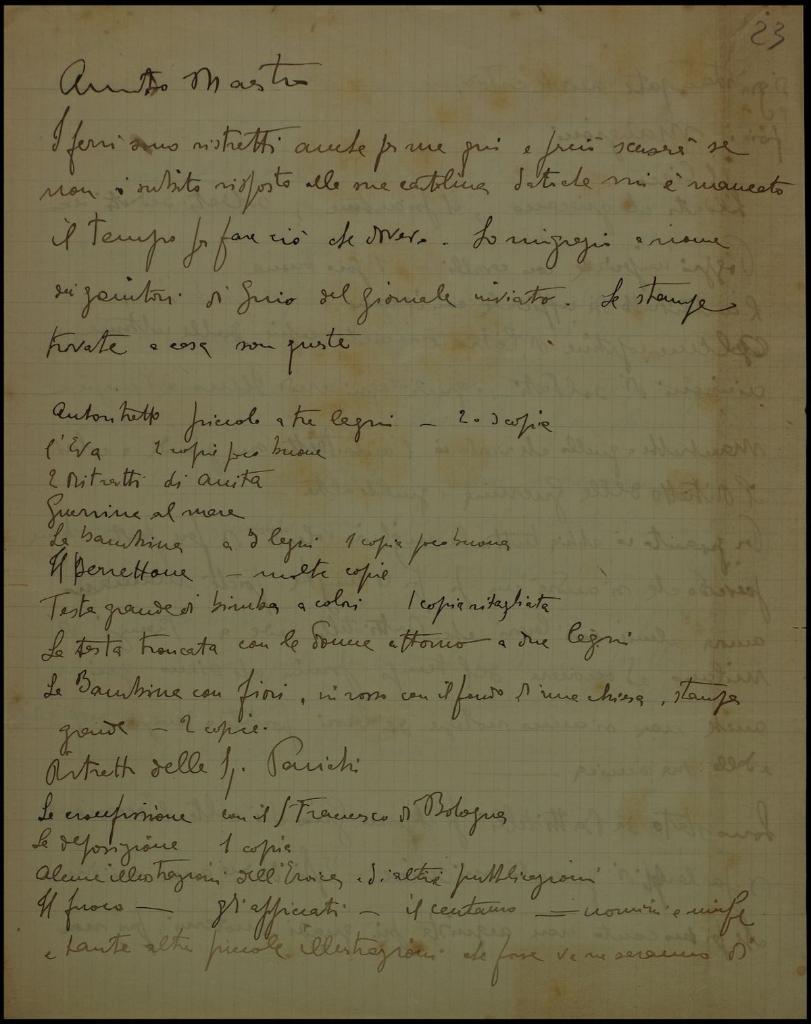 23
Maestro
I ferri sono ristretti anche per me qui e scuserà se
non ò subito risposto alla sua cartolina dato che mi è mancato
il tempo per fare ciò che dovevo. La ringrazio a nome
dei genitori di Guio del giornale inviato. Le stampe
trovate a casa sono queste
Autoritratto piccolo a tre legni - 2 o 3 copie
l'Eva 2 copie poco buone
2 Ritratti di Anita
Guerrina al mare
La bambina a 3 legni 1 copia poco buona
Il Berrettone - molte copie
Testa grande di bimba a colori 1 copia ritagliata
La testa troncata con le donne attorno a due legni
La Bambina con fiori, in rosso con il fondo di una chiesa, stampa
grande - 2 copie.
Ritratto della S. Panichi
La crocefissione con il S Francesco di Bologna
La deposizione 1 copia
Alcune illustrazioni dell'Eroica e di altre pubblicazioni
Il fuoco - gli appiccati - il centauro = uomini e ninfe
e tante altre piccole illustrazioni che forse ve ne saranno di